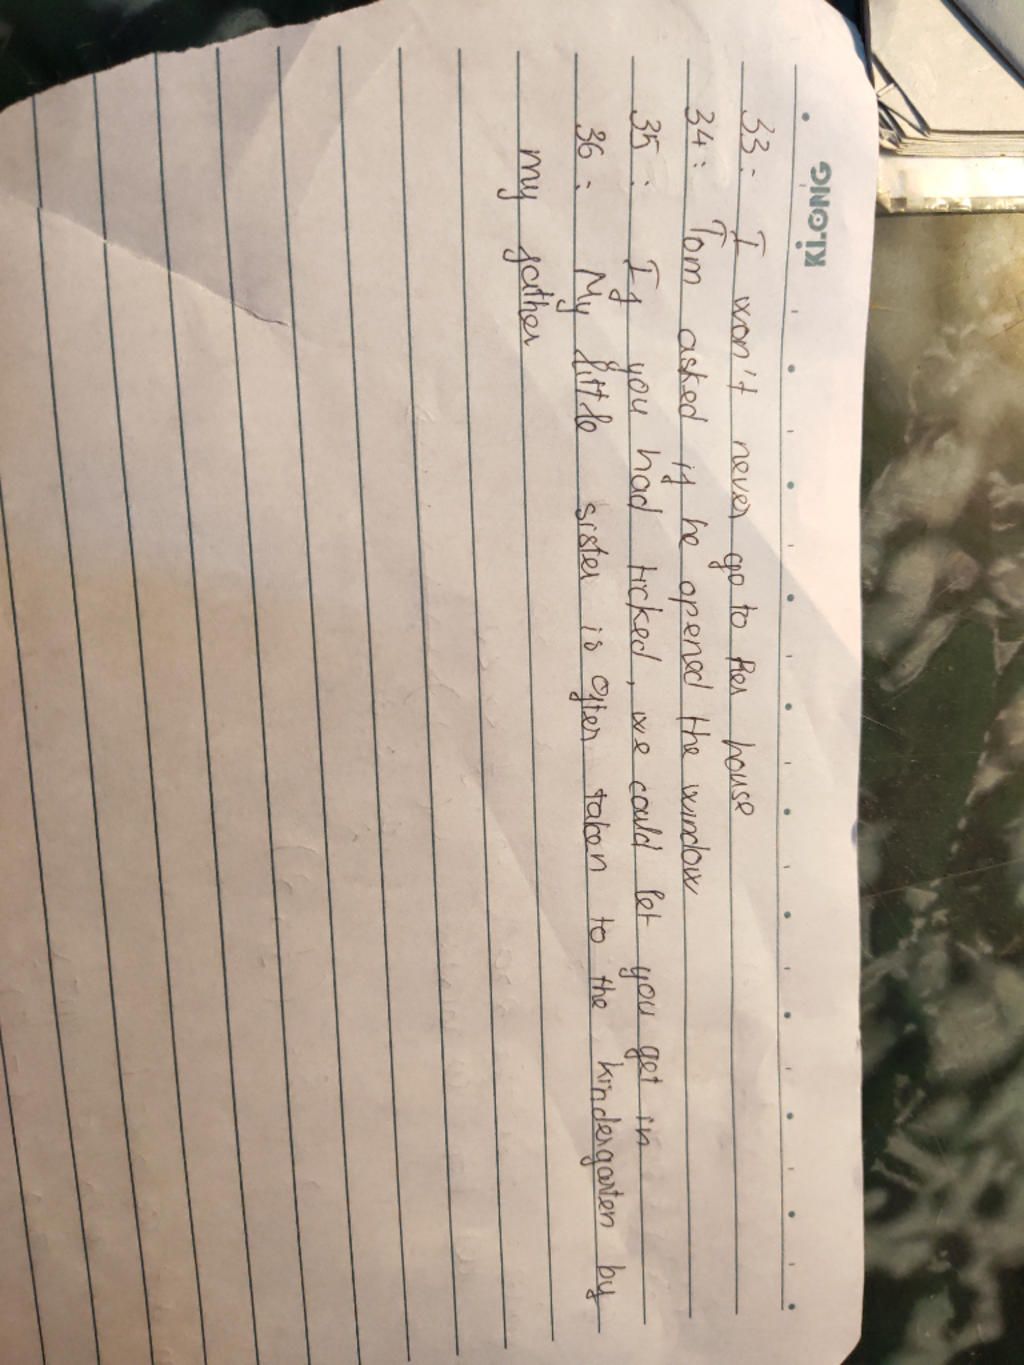 KLONG
33: I won't never go to her house
34: Tom asked if he opened the window
35: If you had ticked, we could let you get in
36: My little sister is often taken to the kindergarten by
my father